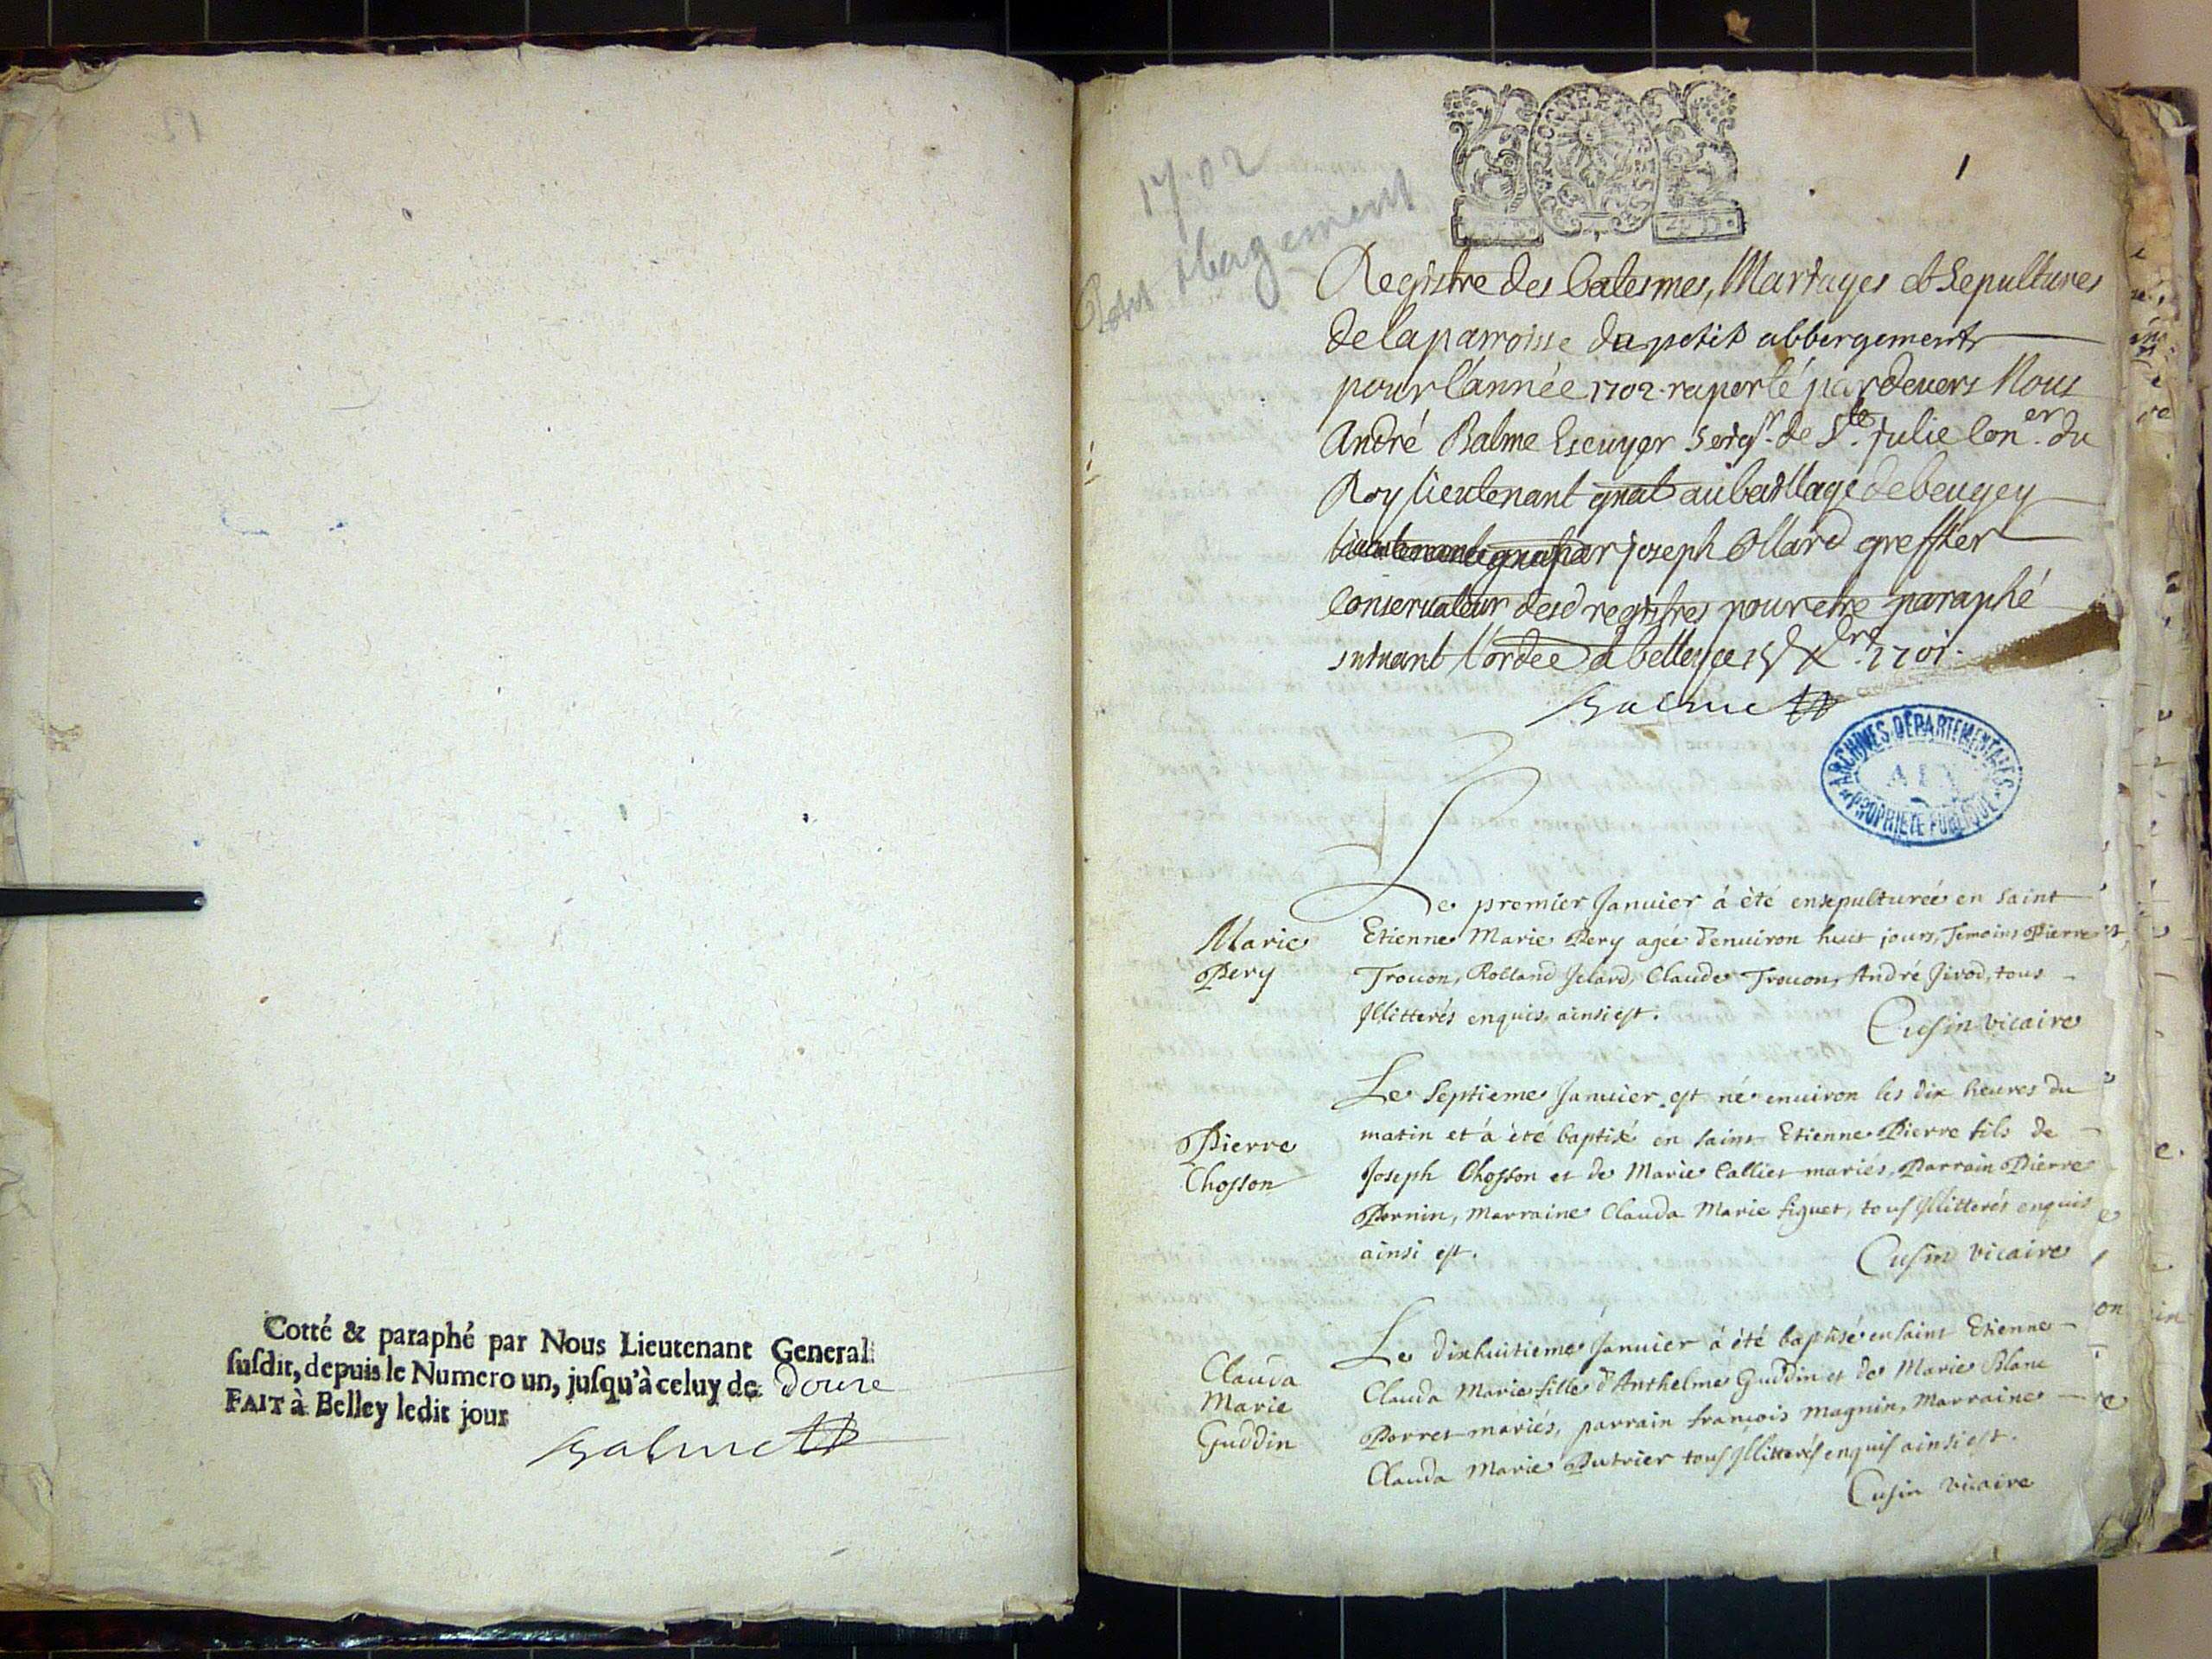 Cotté & paraphé par Nous Lieutenant General
suſdit, depuis le Numero un, juſqu'à celuy de douze
FAIT à Belley ledit jour
Balme
1702
Petit Abergement
1
Registre des batesmes, Mariages et Sepultures
de la parroisse du petit abbergement
pour l'année 1702 raporté pardevers Nous
André Balme Escuyer Seigr. de Ste. Julie Coner. du
Roy lieutenant gnal au bailliage de beugey
par joseph Ollard greffier
Conservateur desd registres pour etre paraphé
suivant l'ordce a belley ce 15 Xbre. 1701.
Balme
ARCHIVES DÉPARTEMENTALES
AIN
PROPRIÉTÉ PUBLIQUE
Marie
Pery
Le premier Janvier á été ensepulturée en saint
Etienne Marie Pery agée d'enuiron huit jours, Temoins Pierre
Trouon, Rolland Jelard, Claude Trouon, André Jivod, tous
Jllitterés enquis, ainsi est.
Cusin vicaire
Pierre
Chosson
Le Septieme Januier est né enuiron les dix heures du
matin et á été baptisé en saint Etienne Pierre fils de
Joseph Chosson et de Marie Calliet mariés, Parrain Pierre
Pernin, Marraine Clauda Marie figuet, tous Jllitterés enquis
ainsi est.
Cusin vicaire
Clauda
Marie
Guddin
Le dixhuitieme Januier á été baptisé en saint Etienne
Clauda Marie fille d'Anthelme Guddin et de Marie Blanc
Perret mariés, parrain francois Magnin, Marraine
Clauda Marie Putrier tous Jllitterés enquis ainsi est.
Cusin vicaire